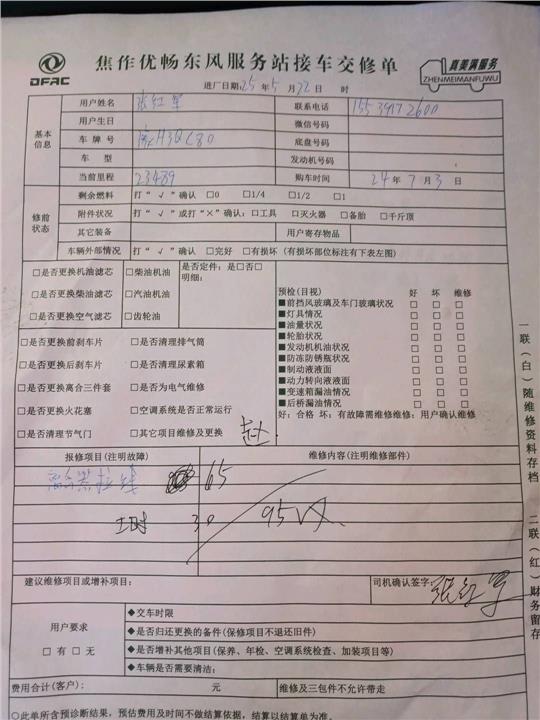 DFAC
焦作优畅东风服务站接车交修单
真美满服务
ZHENMEIMANFUWU
进厂日期:25年5月22日 时
基本信息
用户姓名 张红军 联系电话
用户生日 微信号码
车牌号 底盘号码
车型 发动机号码
当前里程 23489 购车时间 24年7月3日
修前状态
剩余燃料 打“√”确认 □0 □1/4 □1/2 □1
附件状况 打“√”或打“×”确认:□工具 □灭火器 □备胎 □千斤顶
其它装备 用户寄存物品
车辆外部情况 打“√”确认 □完好 □有损坏 (有损坏部位标注有下表左图)
□是否更换机油滤芯 □柴油机油 是否定件: 是□否□
明细:
□是否更换柴油滤芯 □汽油机油
□是否更换空气滤芯 □齿轮油
□是否更换前刹车片 □是否清理排气筒
□是否更换后刹车片 □是否清理尿素箱
□是否更换离合三件套 □是否为电气维修
□是否更换火花塞 □空调系统是否正常运行
□是否清理节气门 □其它项目维修及更换
预检(目视) 好 坏 维修
■前挡风玻璃及车门玻璃状况 □ □ □
■灯具情况 □ □ □
■油量状况 □ □ □
■轮胎状况 □ □ □
■发动机机油状况 □ □ □
■防冻防锈瓶状况 □ □ □
■制动液液面 □ □ □
■动力转向液液面 □ □ □
■变速箱漏油情况 □ □ □
■后桥漏油情况 □ □ □
好:合格 坏:有故障需维修维修:用户确认维修
报修项目(注明故障) 维修内容(注明维修部件)
离合器拉线 65
工时 30 95
建议维修项目或增补项目: 司机确认签字: 张红军
用户要求
□有□无
◆交车时限
◆是否归还更换的备件(保修项目不退还旧件)
◆是否增补其他项目(保养、年检、空调系统检查、加装项目等)
◆车辆是否需要清洁:
费用合计(客户): 元 维修及三包件不允许带走
○此单所含预诊断结果,预估费用及时间不做结算依据,结算以结算单为准。
一联(白)随维修资料存档 二联(红)财务留存